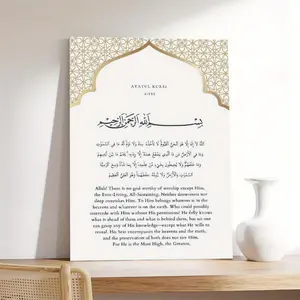 AYATUL KURSI
بسم الله الرحمن الرحيم
اللَّهُ لَا إِلَهَ إِلَّا هُوَ الْحَيُّ الْقَيُّومُ لَا تَأْخُذُهُ سِنَةٌ وَلَا نَوْمٌ لَهُ مَا فِي السَّمَوَتِ
وَمَا فِي الْأَرْضِ مَنْ ذَا الَّذِي يَشْفَعُ عِنْدَهُ إِلَّا بِإِذْنِهِ يَعْلَمُ مَا بَيْنَ أَيْدِيهِمْ
وَمَا خَلْفَهُمْ وَلَا يُحِيطُونَ بِشَيْءٍ مِنْ عِلْمِهِ إِلَّا بِمَا شَاءَ وَسِعَ كُرْسِيُّهُ السَّمَوَتِ
وَالْأَرْضَ وَلَا يَئُودُهُ حِفْظُهُمَا وَهُوَ الْعَلِيُّ الْعَظِيمُ
Allah! There is no god worthy of worship except Him,
the Ever-Living, All-Sustaining. Neither drowsiness nor
sleep overtakes Him. To Him belongs whatever is in the
heavens and whatever is on the earth. Who could possibly
intercede with Him without His permission? He fully knows
what is ahead of them and what is behind them, but no one
can grasp any of His knowledge—except what He wills to
reveal. His Seat encompasses the heavens and the earth,
and the preservation of both does not tire Him.
For He is the Most High, the Greatest.